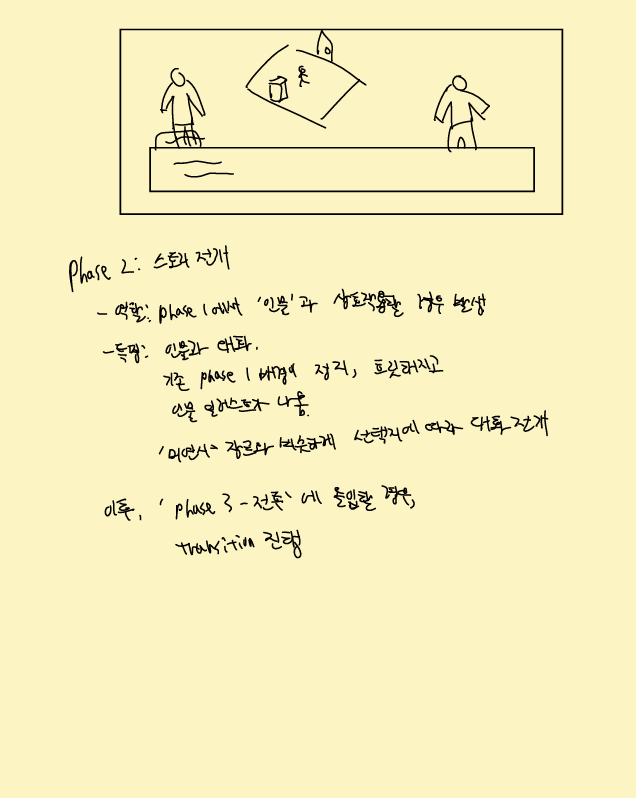 Phase 2: 스토리 전개
- 역할: Phase 1에서 '인물'과 상호작용할 경우 발생
- 특징: 인물과 대화.
기존 phase 1 배경이 정지, 흐릿해지고
인물 일러스트가 나옴.
'미연시' 장르와 비슷하게 선택지에 따라 대화 전개
이후, 'phase 3 - 전투'에 돌입할 경우,
transition 진행